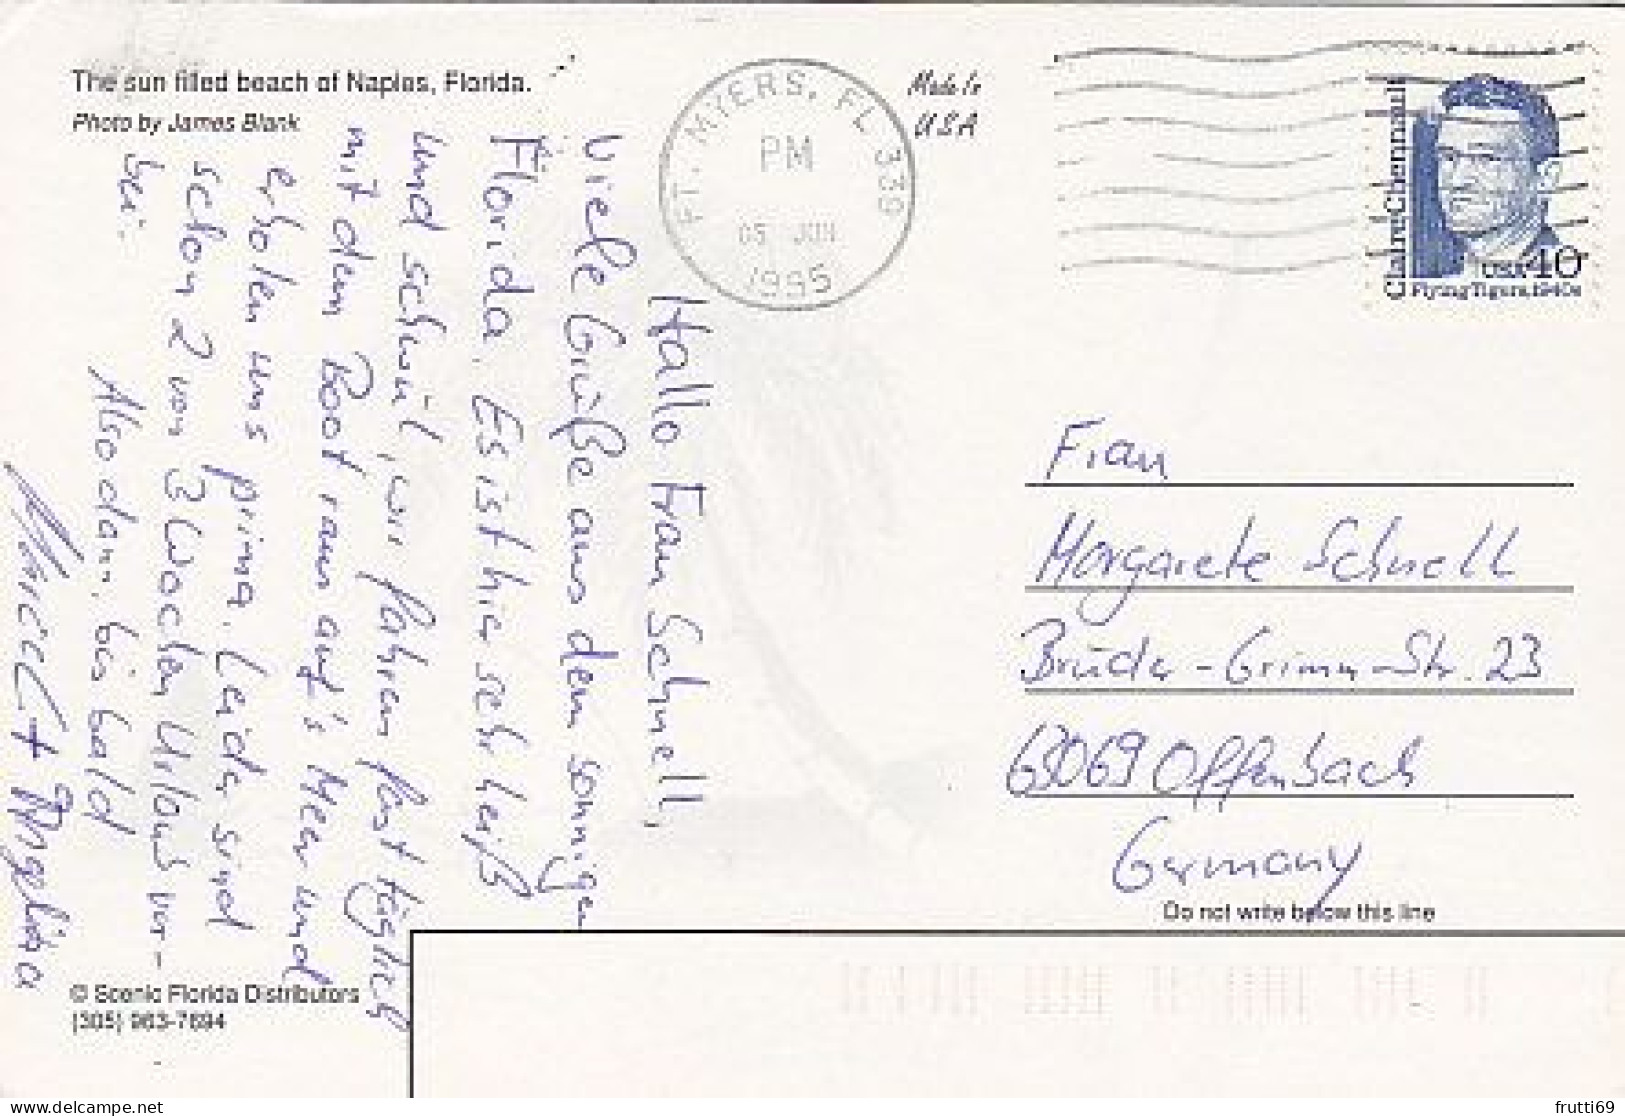 The sun filled beach of Naples, Florida.
Photo by James Blank
Made in
USA
FT. MYERS, FL 339
PM
05 JUN
1995
Claire Chennault
USA 40
Flying Tigers, 1940s
Hallo Frau Schnell,
viele Grüße aus dem sonnigen
Florida. Es ist hier sehr heiß
und schwül, wir fahren fast täglich
mit dem Boot raus auf's Meer und
erholen uns prima. Leider sind
schon 2 von 3 Wochen Urlaub vor-
bei.
Also dann, bis bald
+ Angelika
Frau
Margarete Schnell
Brüder-Grimm-Str. 23
63069 Offenbach
Germany
Do not write below this line
© Scenic Florida Distributors
(305) 963-7694
frutti69